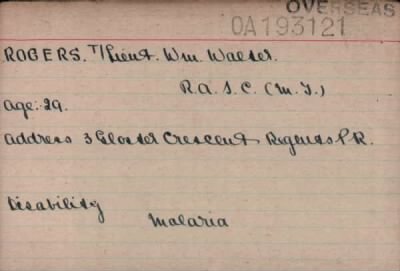 OVERSEAS
OA193121
ROGERS. T/Lieut. Wm. Walter.
R.A.S.C. (M.T.)
Age: 29.
Address 3 Gloster Crescent Regents P.R.
Disability
Malaria